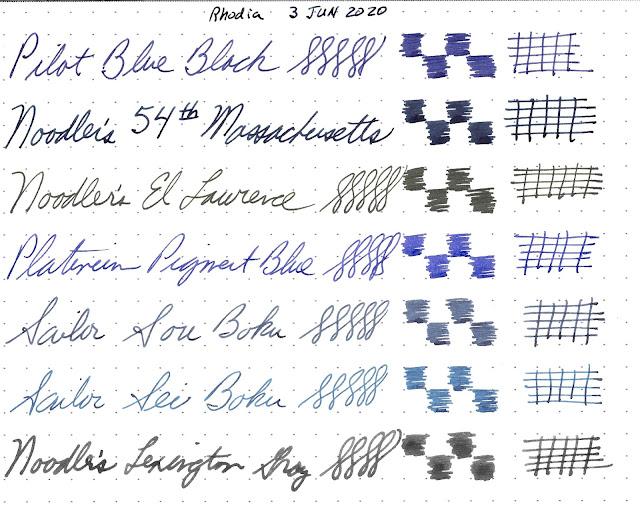 Rhodia 3 JUN 2020
Pilot Blue Black
Noodler's 54th Massachusetts
Noodler's El Lawrence
Platinum Pigment Blue
Sailor Sou Boku
Sailor Sei Boku
Noodler's Lexington Gray